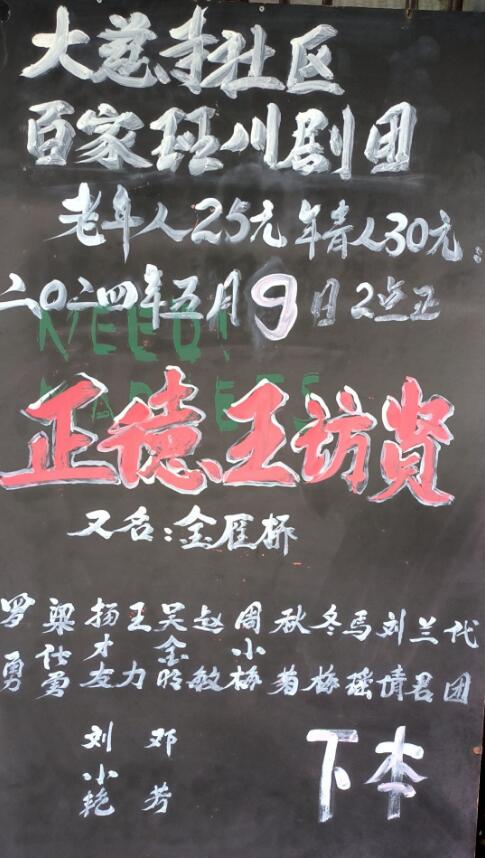 大慈寺社区
百家班川剧团
老年人25元 年青人30元:
二〇二四年五月9日2点正
NEED!
正德王访贤
又名:金雁桥
罗勇
梁仕勇
扬才友
王力
吴金明
赵敏
周小梅
秋菊
冬梅
马瑶
刘倩
兰君
代团
刘小艳
邓芳
下本